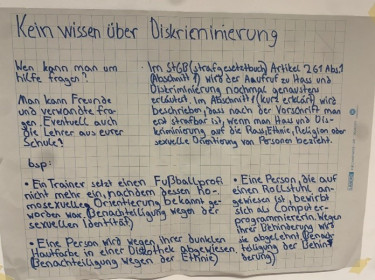 Kein wissen über Diskrieminierung
Wen kann man um
hilfe fragen?
Man kann Freunde
und verwandte fra-
gen. Eventuell auch
die Lehrer aus eurer
Schule?
• Im StGB (strafgesetzbuch) Artikel 261 Abs.1
(Abschnitt 1) wird der Aufruf zu Hass und
Diskriminierung nochmal genaustens
erläutert, im Abschnitt 1 (kurz erklärt) wird
beschrieben, dass nach der Vorschrift man
erst strafbar ist, wenn man Hass und Dis-
kriminierung auf die Rass, Ethnie, Religion oder
sexuelle Orientierung von Personen bezieht.
bsp:
• Ein Trainer setzt einen Fußballprofi
nicht mehr ein, nachdem dessen Ho-
mosexuelle Orientierung bekannt ge-
worden war. (Benachteiligung wegen der
sexuellen Identität)
• Eine Person wird wegen ihrer dunklen
Hautfarbe in einer Diskothek abgewiesen.
(Benachteiligung wegen der Ethnie)
• Eine Person, die auf
einen Rollstuhl an-
gewiesen ist, bewirbt
sich als Computer-
programmiererin. Wegen
Ihrer Behinderung wird
sie abgelehnt (Benach-
teiligung der Behin-
derung)